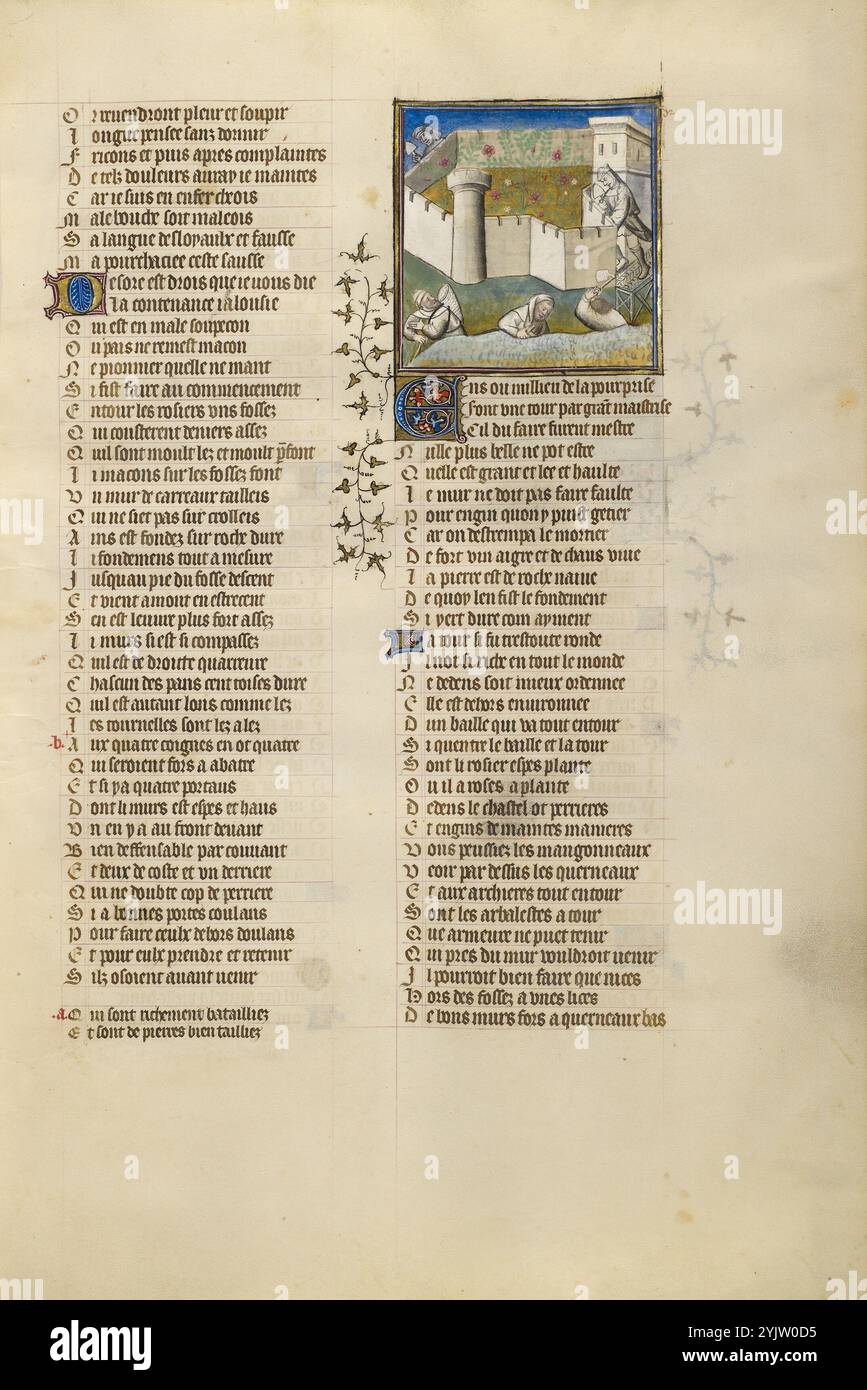 O r reuendront pleur et soupir
L ongue pensee sanz dormir
F ricons et puis apres complaintes
D e telz douleurs auray ie maintes
C ar ie suis en enfer cheois
M ale bouche soit maleois
S a langue desloyaulx et fausse
M a pourchaciee ceste sausse
D esore est drois que ie uous die
L a contenance ialousie
Q ui est en male soupecon
O u pais ne remest macon
N e pionnier quelle ne mant
S i fist faire au commencement
E ntour les rosiers vns fossez
Q ui consterent deniers assez
Q uil sont moult lez et moult pfont
L i macons sur les fossez font
V n mur de carreaux tailleis
Q ui ne siet pas sur crolleis
A ins est fondez sur roche dure
L i fondemens tout a mesure
J usquau pie du fosse descent
E t vient amont en estrecent
S en est leuure plus fort assez
L i murs si est si compassez
Q uil est de droitte quarreure
C hascun des pans cent toises dure
Q uil est autant lons comme lez
L es tournelles sont lez a lez
.b. A ux quatre coignes en ot quatre
Q ui seroient fors a abatre
E t si y a quatre portaus
D ont li murs est espes et haus
V n en y a au front deuant
B ien deffensable par couuant
E t deux de coste et vn derriere
Q ui ne doubte cop de perriere
S i a bonnes portes coulans
P our faire ceulx dehors doulans
E t pour eulx prendre et retenir
S ilz osoient auant uenir
.a. Q ui sont richement batailliez
E t sont de pierres bien tailliez
E ns ou millieu de la pourprise
F ont vne tour par grant maistrise
C il du faire furent mestre
N ulle plus belle ne pot estre
Q uelle est grant et lee et haulte
L e mur ne doit pas faire faulte
P our engin quon y puist getter
C ar on destrempa le mortier
D e fort vin aigre et de chaus viue
L a pierre est de roche naiue
D e quoy len fist le fondement
S i yert dure com ayment
L a tour si fu trestoute ronde
J l not si riche en tout le monde
N e dedens soit mieux ordennee
E lle est dehors enuironnee
D un baille qui va tout entour
S i quentre le baille et la tour
S ont li rosier espes plante
O u il a roses a plante
D edens le chastel ot perrieres
E t engins de maintes manieres
V ous peussiez les mangonneaux
V eoir par dessus les querneaux
E t aux archieres tout entour
S ont les arbalestes a tour
Q ue armeure ne puet tenir
Q ui pres du mur vouldroit uenir
J l pourroit bien faire que nices
H ors des fossez a vnes lices
D e bons murs fors a querneaux bas
alamy
a
Image ID: 2YJW0D5
www.alamy.com